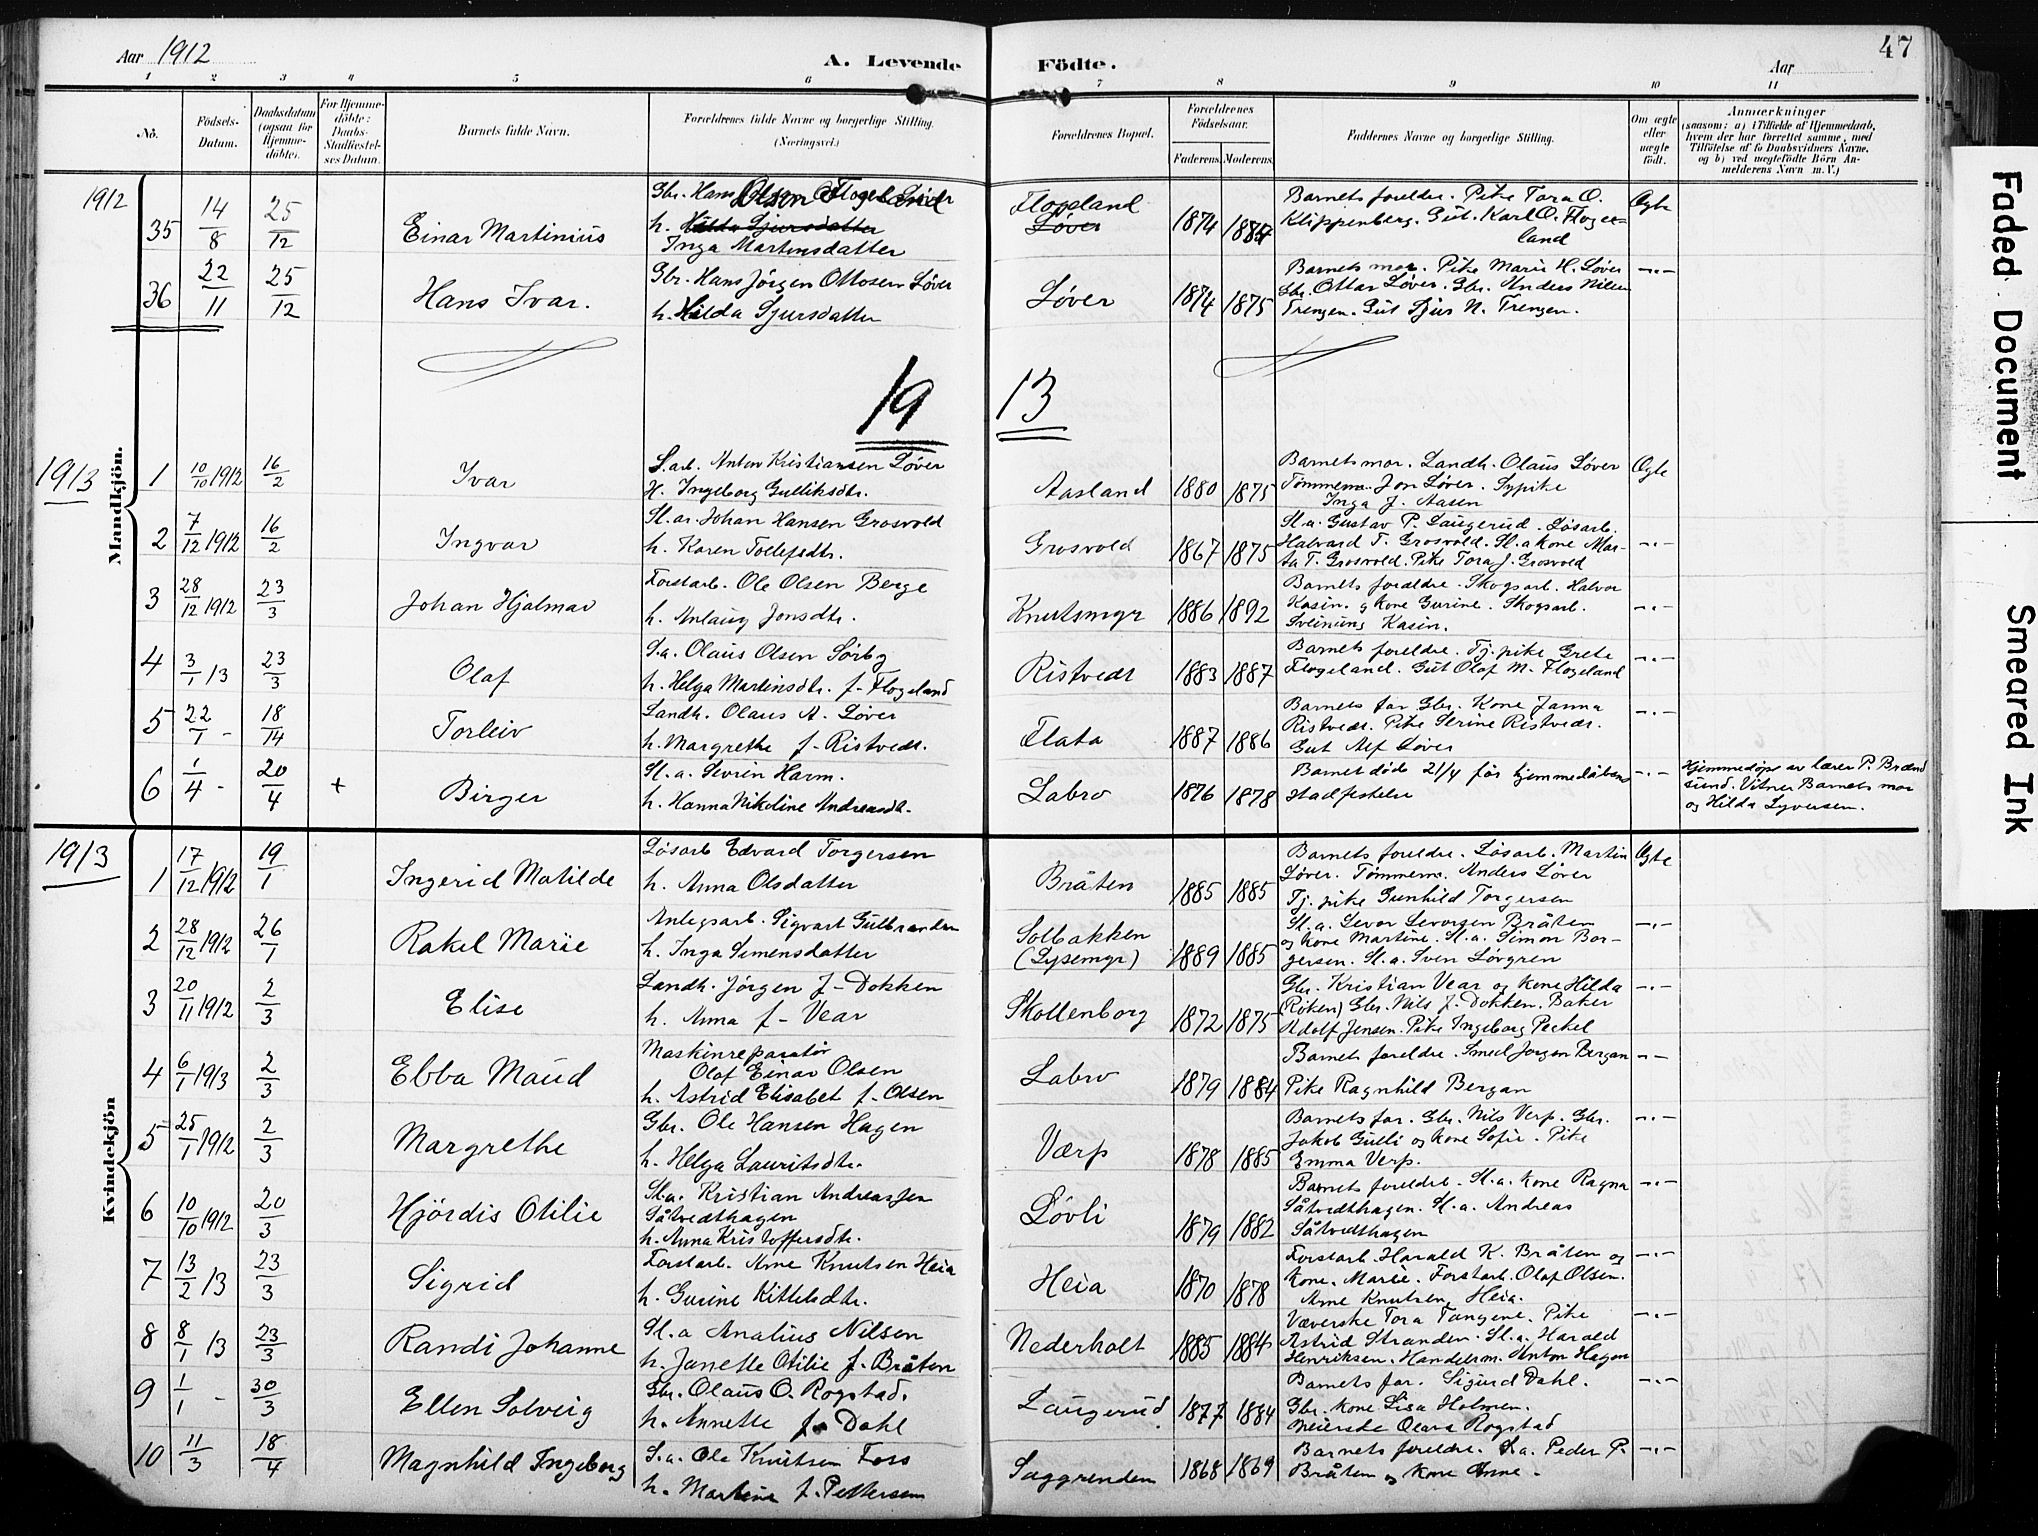 Aar 1912
A. Levende Födte.
Aar
47
1 2 3 4 5 6 7 8 9 10 11
No. Födsels-Datum. Daabsdatum (ogsaa for Hjemmedöbte). For Hjemmedöbte: Daabs-Stadfæstelses Datum. Barnets fulde Navn. Forældrenes fulde Navne og borgerlige Stilling. (Næringsvei.) Forældrenes Bopæl. Forældrenes Födselsaar. Faderens. Moderens. Faddernes Navne og borgerlige Stilling. Om ægte eller uægte födt. Anmærkninger (saasom: a) i Tilfælde af Hjemmedaab, hvem der har forrettet samme, med Tilföielse af to Daabsvidners Navne, og b) ved uægtefödte Börn Anmelderens Navn m. V.)
1912
35 14/8 25/12 Einar Martinius
Gbr. Hans Olsen Flogeland
h. Hilda Sjursdatter
Inga Martinsdatter
Flogeland
Løver
1874 1884
Barnets foreldre. Pike Tora O.
Klippenberg. Gut. Karl O. Floge-
land
Ægte
36 22/11 25/12 Hans Ivar.
Gbr. Hans Jörgen Ottosen Löver
h. Hilda Sjursdatter
Löver
1874 1875
Barnets mor. Pike Marie H. Löver
Gbr. Ottar Löver. Gbr. Anders Nilsen
Trengen. Gut Sjur N. Trengen.
—„—
19 13
Mandkjön.
1913
1 10/10 1912 16/2 Ivar
S.arb. Anton Kristiansen Löver
H. Ingeborg Gulliksdtr.
Aasland
1880 1875
Barnets mor. Landh. Olaus Löver
Tömmerm. Jon Löver. Sypike
Inga J. Aasen
Ægte
2 7/12 1912 16/2 Ingvar
Sl.ar. Johan Hansen Grosvold
h. Karen Tollefsdtr.
Grosvold
1867 1875
Sl.a. Gustav P. Laugerud. Løsarb.
Halvard T. Grosvold. Sl.a kone Mar-
ta T. Grosvold. Pike Tora J. Grosvold
—„—
3 28/12 1912 23/3 Johan Hjalmar
Forstarb. Ole Olsen Berge
h. Anlaug Jonsdtr.
Knutsmyr
1886 1892
Barnets foreldre. Skogsarb. Halvor
Kasin. og kone Gurine. Skogsarb.
Sveinung Kasin.
—„—
4 3/1 13 23/3 Olaf
S.a. Olaus Olsen Sörby
h. Helga Martinsdtr. f. Flogeland
Ristvedt
1883 1887
Barnets foreldre. Tj.pike Grete
Flogeland. Gut Olaf M. Flogeland
—„—
5 22/1 - 18/14 Torleiv
Landh. Olaus A. Löver
h. Margrethe f. Ristvedt.
Flata
1887 1886
Barnets far Gbr. Kone Janna
Ristvedt. Pike Serine Ristvedt.
Gut Alf Löver
—„—
6 1/4 - 20/4 + Birger
Sl.a. Sevrin Harm.
h. Hanna Nikoline Andreasdt.
Labro
1876 1878
Barnet døde 21/4 før hjemmedåbens
stadfestelse
—„—
Hjemmedøpt av lærer P. Brænd
sund. Vitner Barnets mor
og Hilda Syversen.
Kvindekjön
1913
1 17/12 1912 19/1 Ingerid Matilde
Løsarb Edvard Torgersen
h. Anna Olsdatter
Bråten
1885 1885
Barnets foreldre. Løsarb. Martin
Løver. Tømmerm. Anders Löver
Tj.pike Gunhild Torgersen
Ægte
2 28/12 1912 26/1 Rakel Marie
Anlegsarb. Sigvart Gulbrandsen
h. Inga Simensdatter
Solbakken
(Lysemyr)
1889 1885
Sl.a. Sevor Sevorsen Bråten
og kone Martine. Sl.a. Simon Bor-
gersen. Sl.a. Sven Lövgren
—„—
3 20/11 1912 2/3 Elise
Landh. Jörgen J. Dokken
h. Anna f. Vear
Skollenborg
1872 1875
Gbr. Kristian Vear og kone Hilda
(Röken) Gbr. Nils J. Dokken. Baker
Adolf Jensen. Pike Ingeborg Peckel
—„—
4 6/1 1913 2/3 Ebba Maud
Maskinreparatör
Olaf Einar Olsen
h. Astrid Elisabet f. Olsen
Labro
1879 1884
Barnets foreldre. Smed Jorgen Bergan
Pike Ragnhild Bergan
—„—
5 25/1 1912 2/3 Margrethe
Gbr. Ole Hansen Hagen
h. Helga Lauritsdtr.
Værp
1878 1885
Barnets far. Gbr. Nils Verp. Gbr.
Jakob Gulli og kone Sofie. Pike
Emma Verp.
—„—
6 10/10 1912 20/3 Hjördis Otilie
Sl.a. Kristian Andreassen
Såtvedthagen
h. Anna Kristoffersdtr.
Lövli
1879 1882
Barnets foreldre. Sl.a. kone Ragna
Såtvedthagen. Sl.a. Andreas
Såtvedthagen
—„—
7 13/2 13 23/3 Sigrid
Forstarb. Arne Knutsen Heia
h. Gurine Kittelsdtr.
Heia
1870 1878
Forstarb. Harald K. Bråten og
kone. Marie. Forstarb. Olaf Olsen.
Arne Knutsen Heia.
—„—
8 8/1 13 23/3 Randi Johanne
Sl.a Analius Nilsen
h. Janette Otilie f. Bråten
Nederholt
1885 1884
Væverske Tora Tangene. Pike
Astrid Stranden. Sl.a. Harald
Henriksen. Handelsm. Anton Hagen
—„—
9 1/1 - 30/3 Ellen Solveig
Gbr. Olaus O. Rogstad.
h. Annette f. Dahl
Laugerud
1877 1884
Barnets far. Sigurd Dahl.
Gbr. kone Lisa Holmen.
Meierske Olava Rogstad
—„—
10 11/3 18/4 Magnhild Ingeborg
S.a. Ole Knutsen Foss
h. Martine f. Pettersen
Saggrenden
1868 1869
Barnets foreldre. Sl.a. Peder P.
Bråten og kone Anne.
—„—
Faded Document
Smeared Ink